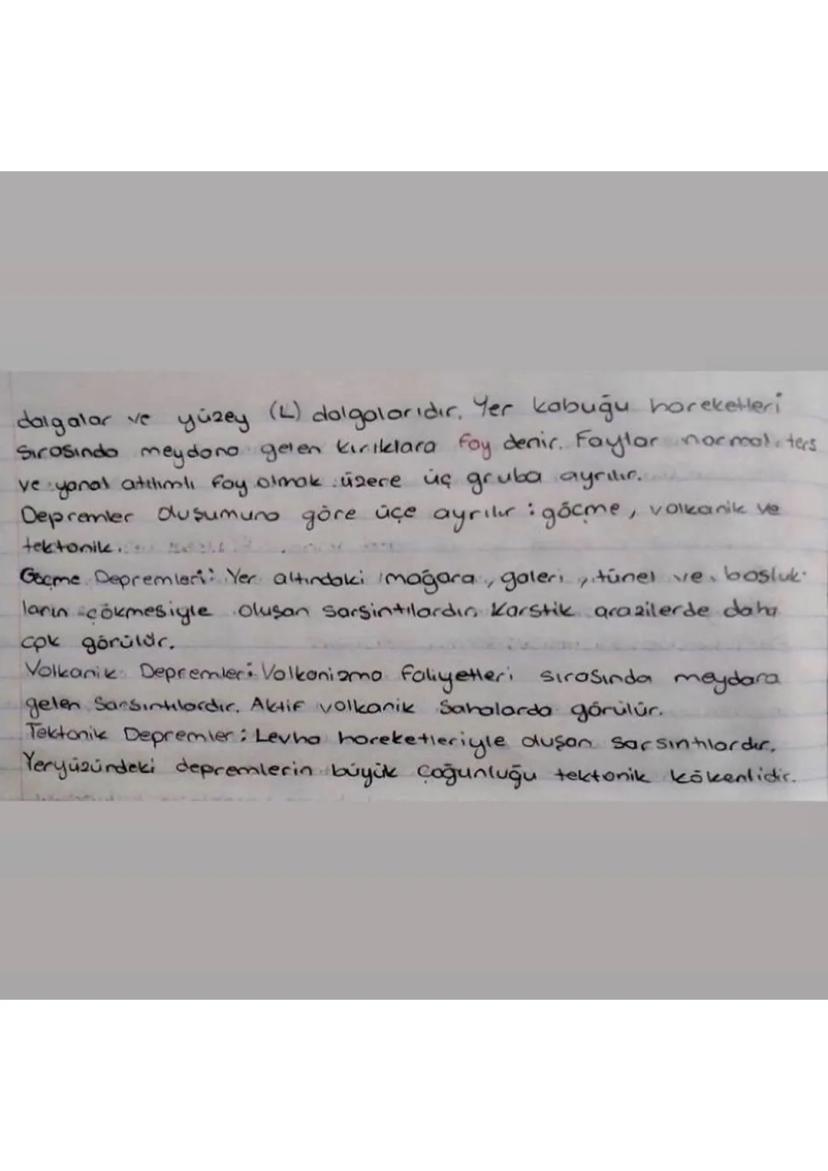 dalgalar ve yüzey (L) dalgalarıdır. Yer kabuğu hareketleri
sırasında meydana gelen kırıklara fay denir. Faylar normal, ters
ve yanal atılımlı fay olmak üzere üç gruba ayrılır.
Depremler oluşumuna göre üçe ayrılır : göçme, volkanik ve
tektonik.
Göçme Depremleri: Yer altındaki mağara, galeri, tünel ve boşluk-
ların çökmesiyle oluşan sarsıntılardır. Karstik arazilerde daha
çok görülür.
Volkanik Depremler: Volkanizma faliyetleri sırasında meydana
gelen sarsıntılardır. Aktif volkanik sahalarda görülür.
Tektonik Depremler: Levha hareketleriyle oluşan sarsıntılardır.
Yeryüzündeki depremlerin büyük çoğunluğu tektonik kökenlidir.